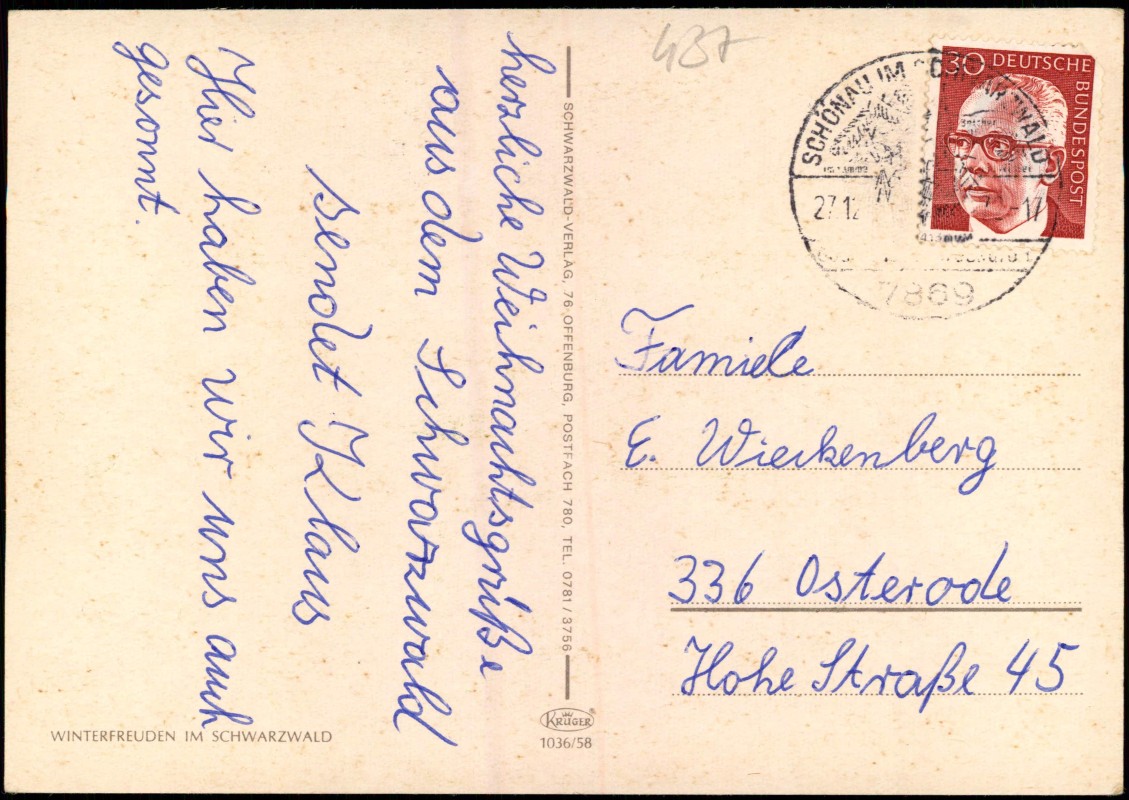 herzliche Weihnachtsgrüße
aus dem Schwarzwald
sendet Klaus
Hier haben wir uns auch
gesonnt.
WINTERFREUDEN IM SCHWARZWALD
SCHWARZWALD-VERLAG, 76 OFFENBURG, POSTFACH 780, TEL. 0781/3756
KRÜGER
1036/58
437
30 DEUTSCHE
BUNDESPOST
SCHÖNAU IM SCHWARZWALD
27.12
-17
7869
Familie
E. Wieckenberg
336 Osterode
Hohe Straße 45